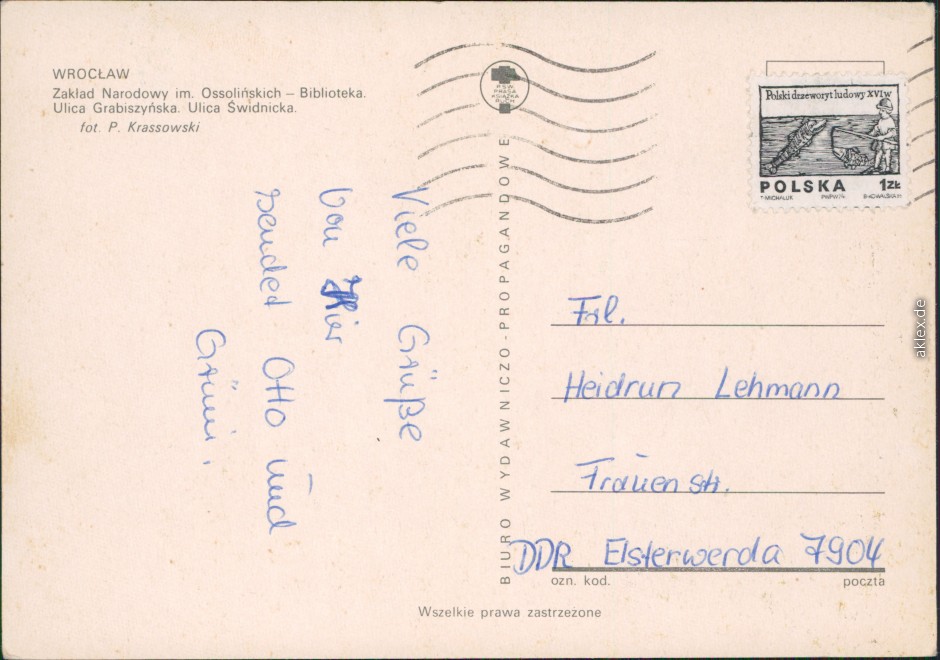 WROCŁAW
Zakład Narodowy im. Ossolińskich – Biblioteka.
Ulica Grabiszyńska. Ulica Świdnicka.
fot. P. Krassowski
RSW
PRASA
KSIĄŻKA
RUCH
Viele Grüße
Von Hier
sendet Otto und
Grüni.
BIURO WYDAWNICZO-PROPAGANDOWE
Polski drzeworyt ludowy XVI w
POLSKA 1 ZŁ
T. MICHALUK PWPW 74
Frl.
Heidrun Lehmann
Frauenstr.
DDR Elsterwerda 7904
ozn. kod. poczta
Wszelkie prawa zastrzeżone
aklex.de